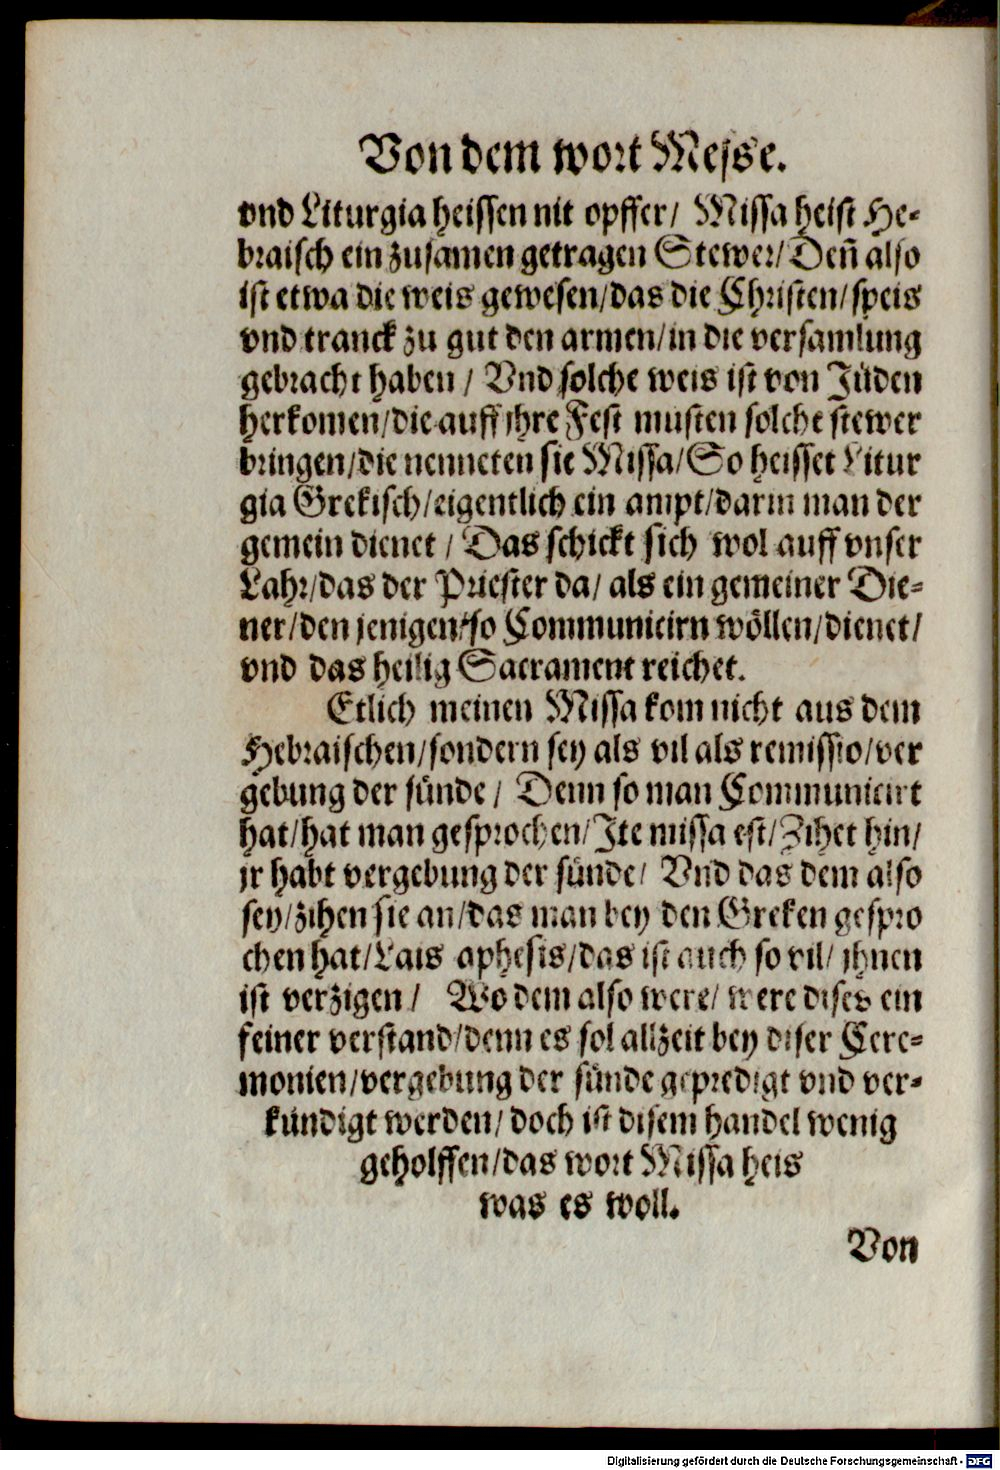 Von dem wort Messe.
vnd Liturgia heissen nit opffer/ Missa heist He-
braisch ein zusamen getragen Stewer/ Deñ also
ist etwa die weis gewesen/das die Christen/speis
vnd tranck zu gut den armen/in die versamlung
gebracht haben / Vnd solche weis ist von Jüden
herkomen/die auff ihre Fest musten solche stewer
bringen/die nenneten sie Missa/So heisset Litur
gia Grekisch/eigentlich ein ampt/darin man der
gemein dienet / Das schickt sich wol auff vnser
Lahr/das der Priester da/ als ein gemeiner Die-
ner/den jenigen/so Communicirn wöllen/dienet/
vnd das heilig Sacrament reichet.
Etlich meinen Missa kom nicht aus dem
Hebraischen/sondern sey als vil als remissio/ver
gebung der sünde / Denn so man Communicirt
hat/hat man gesprochen/Ite missa est/Zihet hin/
jr habt vergebung der sünde/ Vnd das dem also
sey/zihen sie an/das man bey den Greken gespro
chen hat/Lais aphesis/das ist auch so vil/ ihnen
ist verzigen / Wo dem also were/ were dises ein
feiner verstand/denn es sol allzeit bey diser Cere-
monien/vergebung der sünde gepredigt vnd ver-
kündigt werden/ doch ist disem handel wenig
geholffen/das wort Missa heis
was es woll.
Von
Digitalisierung gefördert durch die Deutsche Forschungsgemeinschaft - DFG